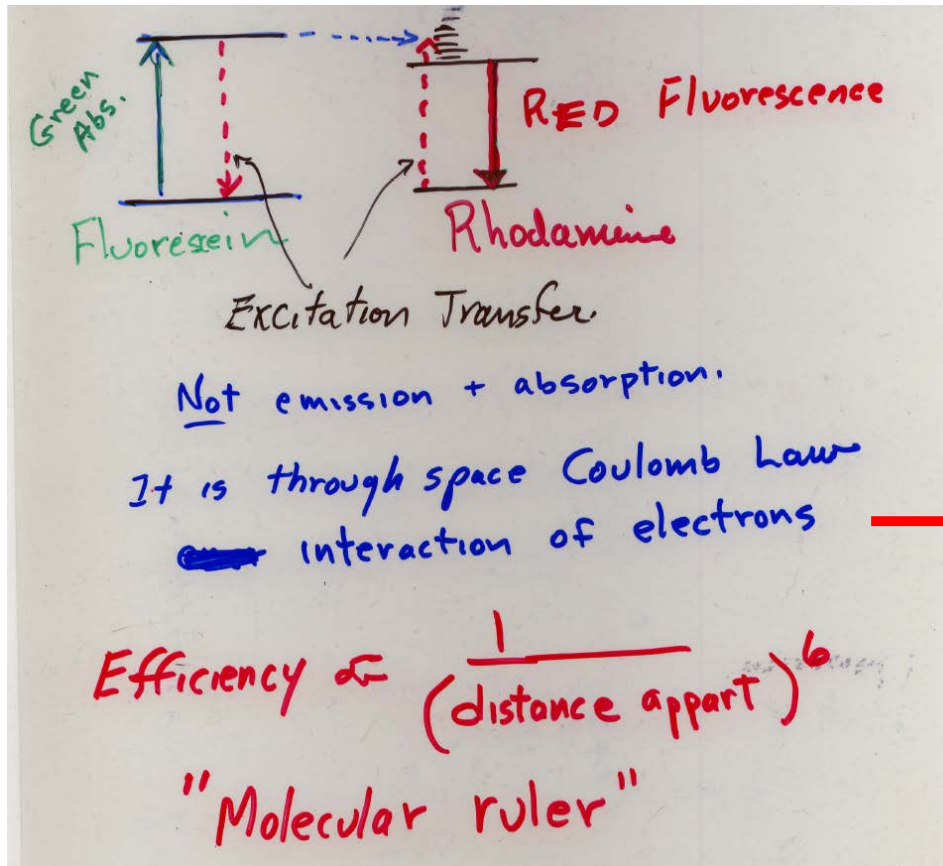 Green
Abs.
RED Fluorescence
Fluorescein
Rhodamine
Excitation Transfer.
Not emission + absorption.
It is through space Coulomb Law
interaction of electrons
Efficiency ∝ 1
(distance appart)^6
"Molecular ruler"